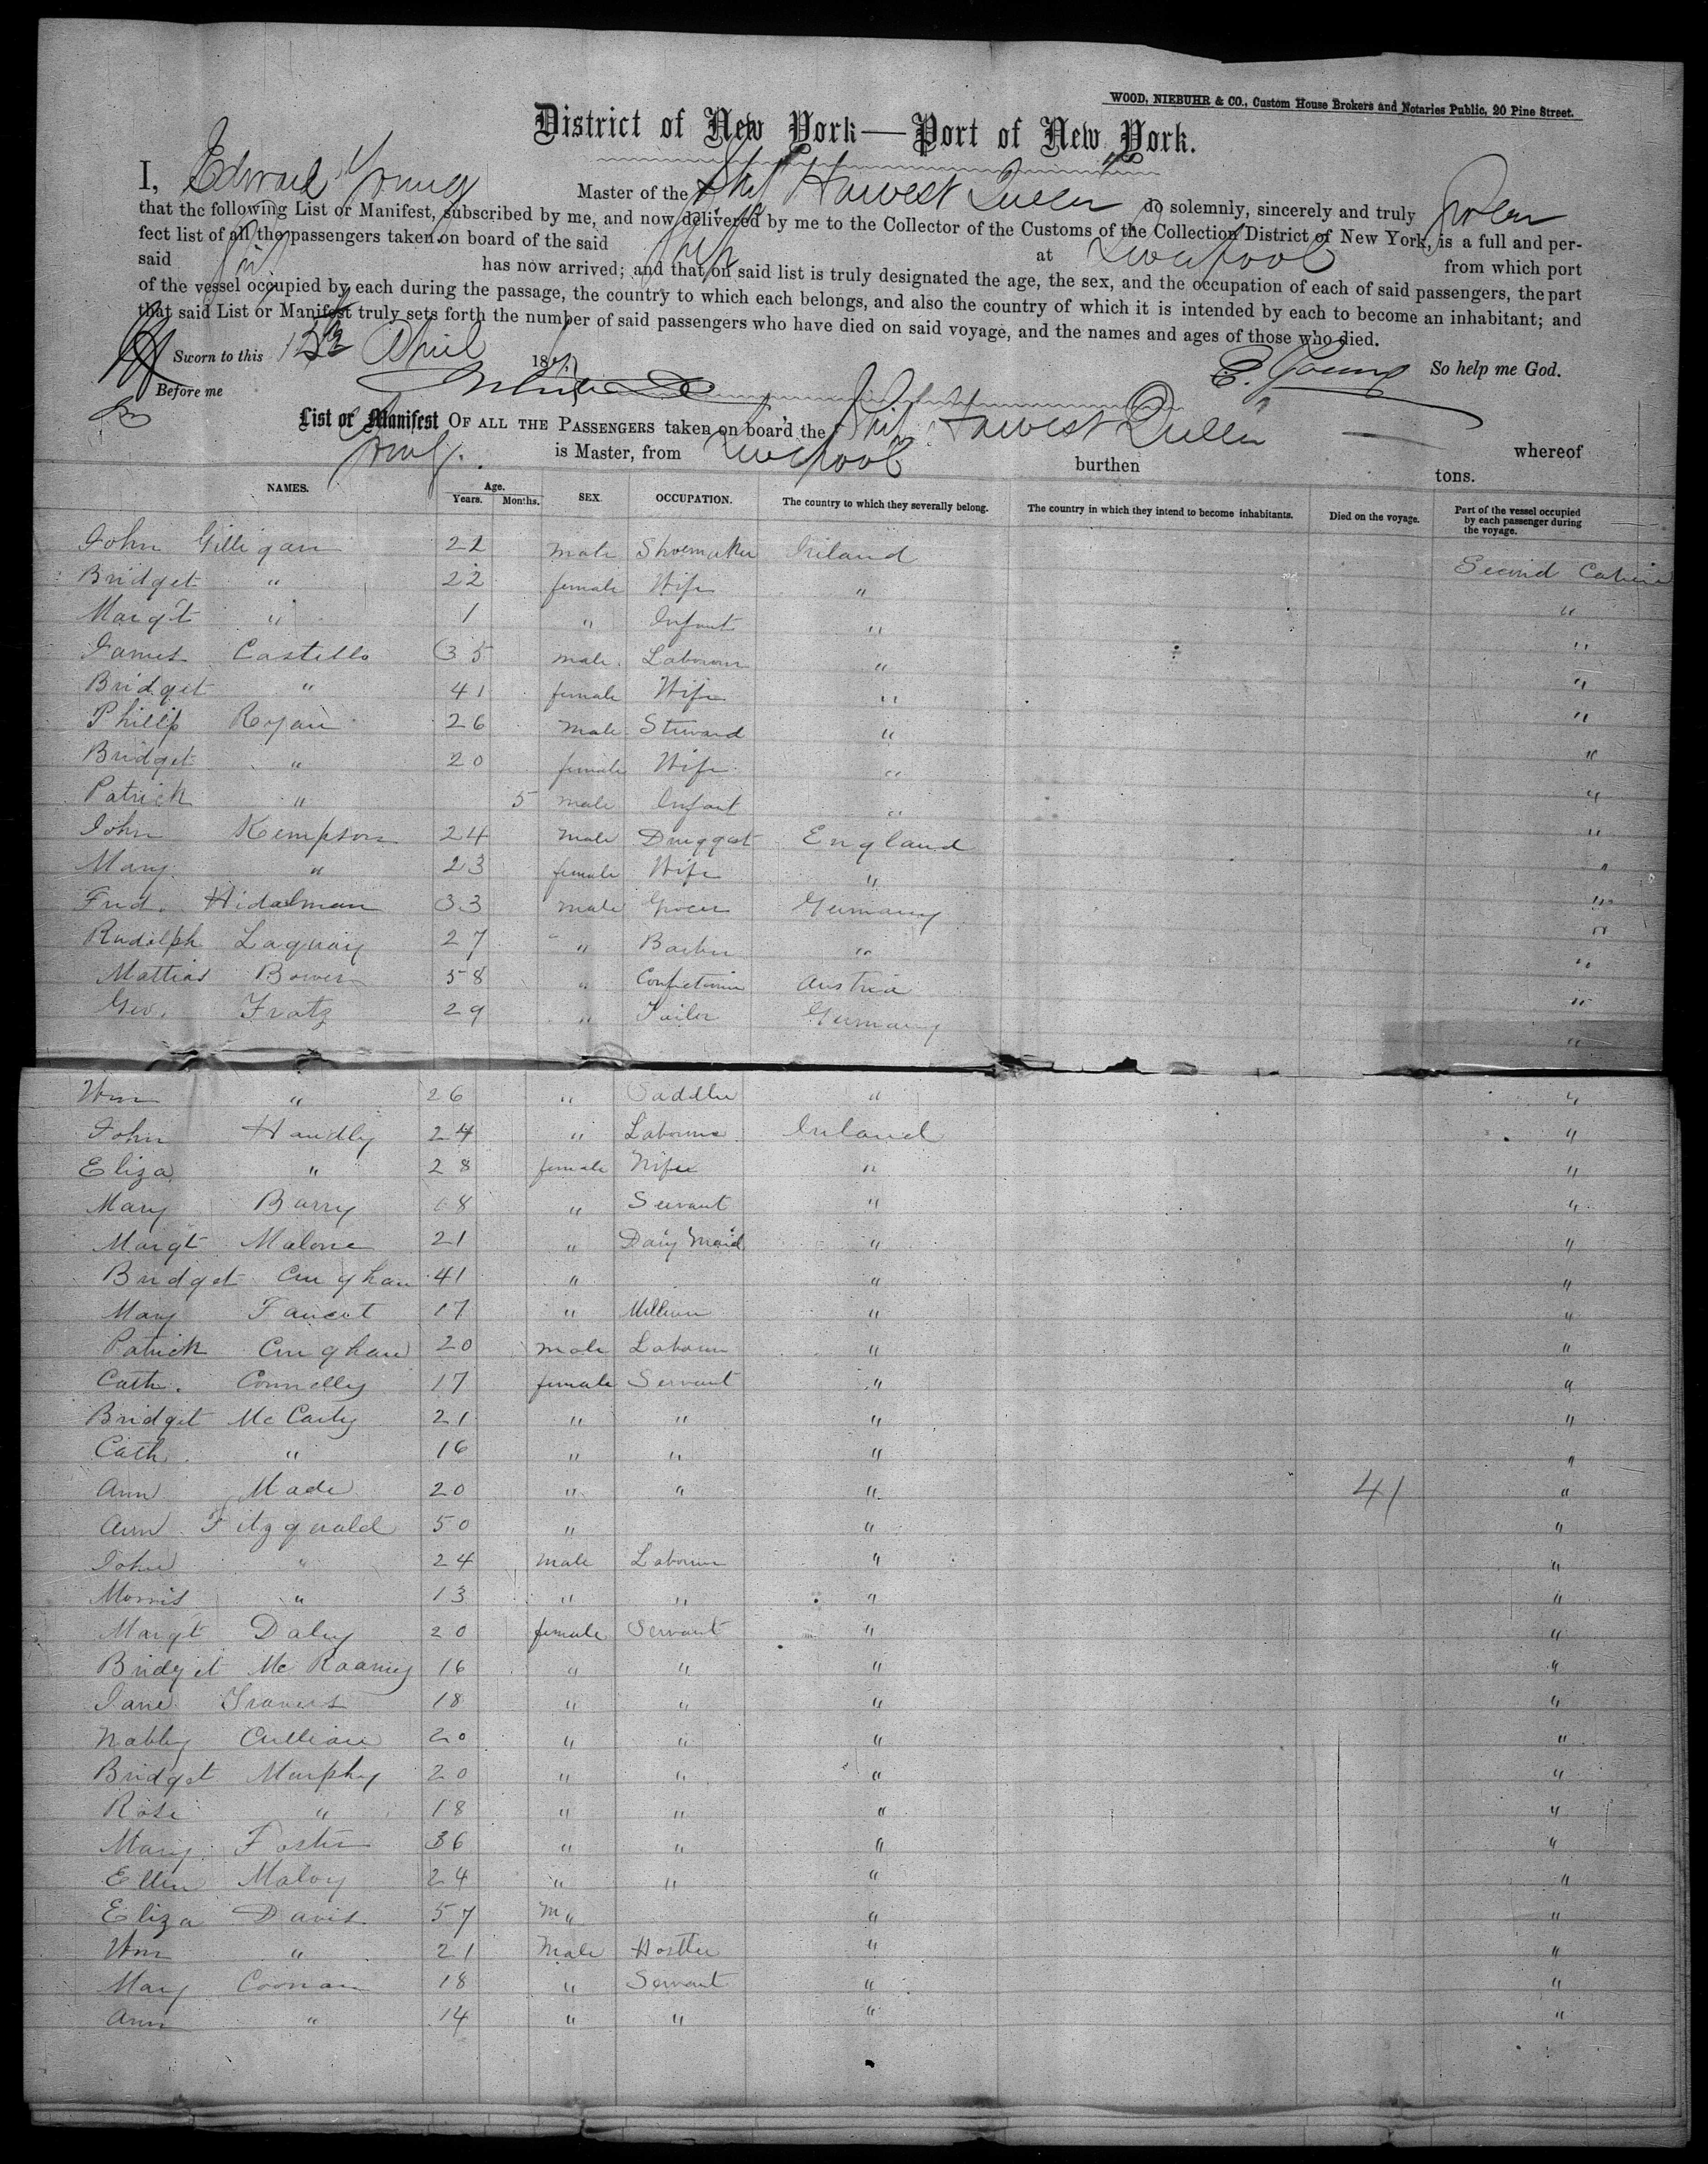 WOOD, NIEBUHR & CO., Custom House Brokers and Notaries Public, 20 Pine Street.
District of New York—Port of New York.
I, Edward Young Master of the Ship Harvest Queen do solemnly, sincerely and truly swear
that the following List or Manifest, subscribed by me, and now delivered by me to the Collector of the Customs of the Collection District of New York, is a full and per-
fect list of all the passengers taken on board of the said Ship at Liverpool from which port
said Ship has now arrived; and that on said list is truly designated the age, the sex, and the occupation of each of said passengers, the part
of the vessel occupied by each during the passage, the country to which each belongs, and also the country of which it is intended by each to become an inhabitant; and
that said List or Manifest truly sets forth the number of said passengers who have died on said voyage, and the names and ages of those who died.
Sworn to this April 18 E. Young So help me God.
Before me
List or Manifest OF ALL THE PASSENGERS taken on board the Ship Harvest Queen whereof
Young is Master, from Liverpool burthen tons.
NAMES. Age. Years. Months. SEX. OCCUPATION. The country to which they severally belong. The country in which they intend to become inhabitants. Died on the voyage. Part of the vessel occupied by each passenger during the voyage.
John Gilligan 22 male Shoemaker Ireland Second Cabin
Bridget " 22 female Wife " "
Margt " 1 " Infant " "
James Castello 35 male Labourer " "
Bridget " 41 female Wife " "
Phillip Ryan 26 male Steward " "
Bridget " 20 female Wife " "
Patrick " 5 male Infant " "
John Kempson 24 male Druggest England "
Mary " 23 female Wife " "
Fred. Hidalman 33 male Grocer Germany "
Rudolph Laguay 27 " Barber " "
Mattias Bower 58 " Austria "
Geo. Fratz 29 " Tailor Germany "
Wm " 26 " Saddler " "
John Handly 24 " Labourer Ireland "
Eliza " 28 female Wife " "
Mary Barry 8 " Servant " "
Margt Malone 21 " Dairy Maid " "
Bridget 41 " " "
Mary 17 " " "
Patrick 20 male Labourer " "
Cath. Connolly 17 female Servant " "
Bridget McCarty 21 " " " "
Cath. " 16 " " " "
Ann Made 20 " " " 41 "
Ann Fitzgerald 50 " " "
John " 24 male Labourer " "
Morris " 13 " " " "
Margt Daley 20 female Servant " "
Bridget Mc Roaney 16 " " " "
Jane Travers 18 " " " "
Nabby 20 " " " "
Bridget Murphy 20 " " " "
Rose " 18 " " " "
Mary Foster 36 " " " "
Ellen Maloy 24 " " " "
Eliza Davis 57 " " "
Wm " 21 Male Hostler " "
Mary Coonan 18 " Servant " "
Ann " 14 " " " "